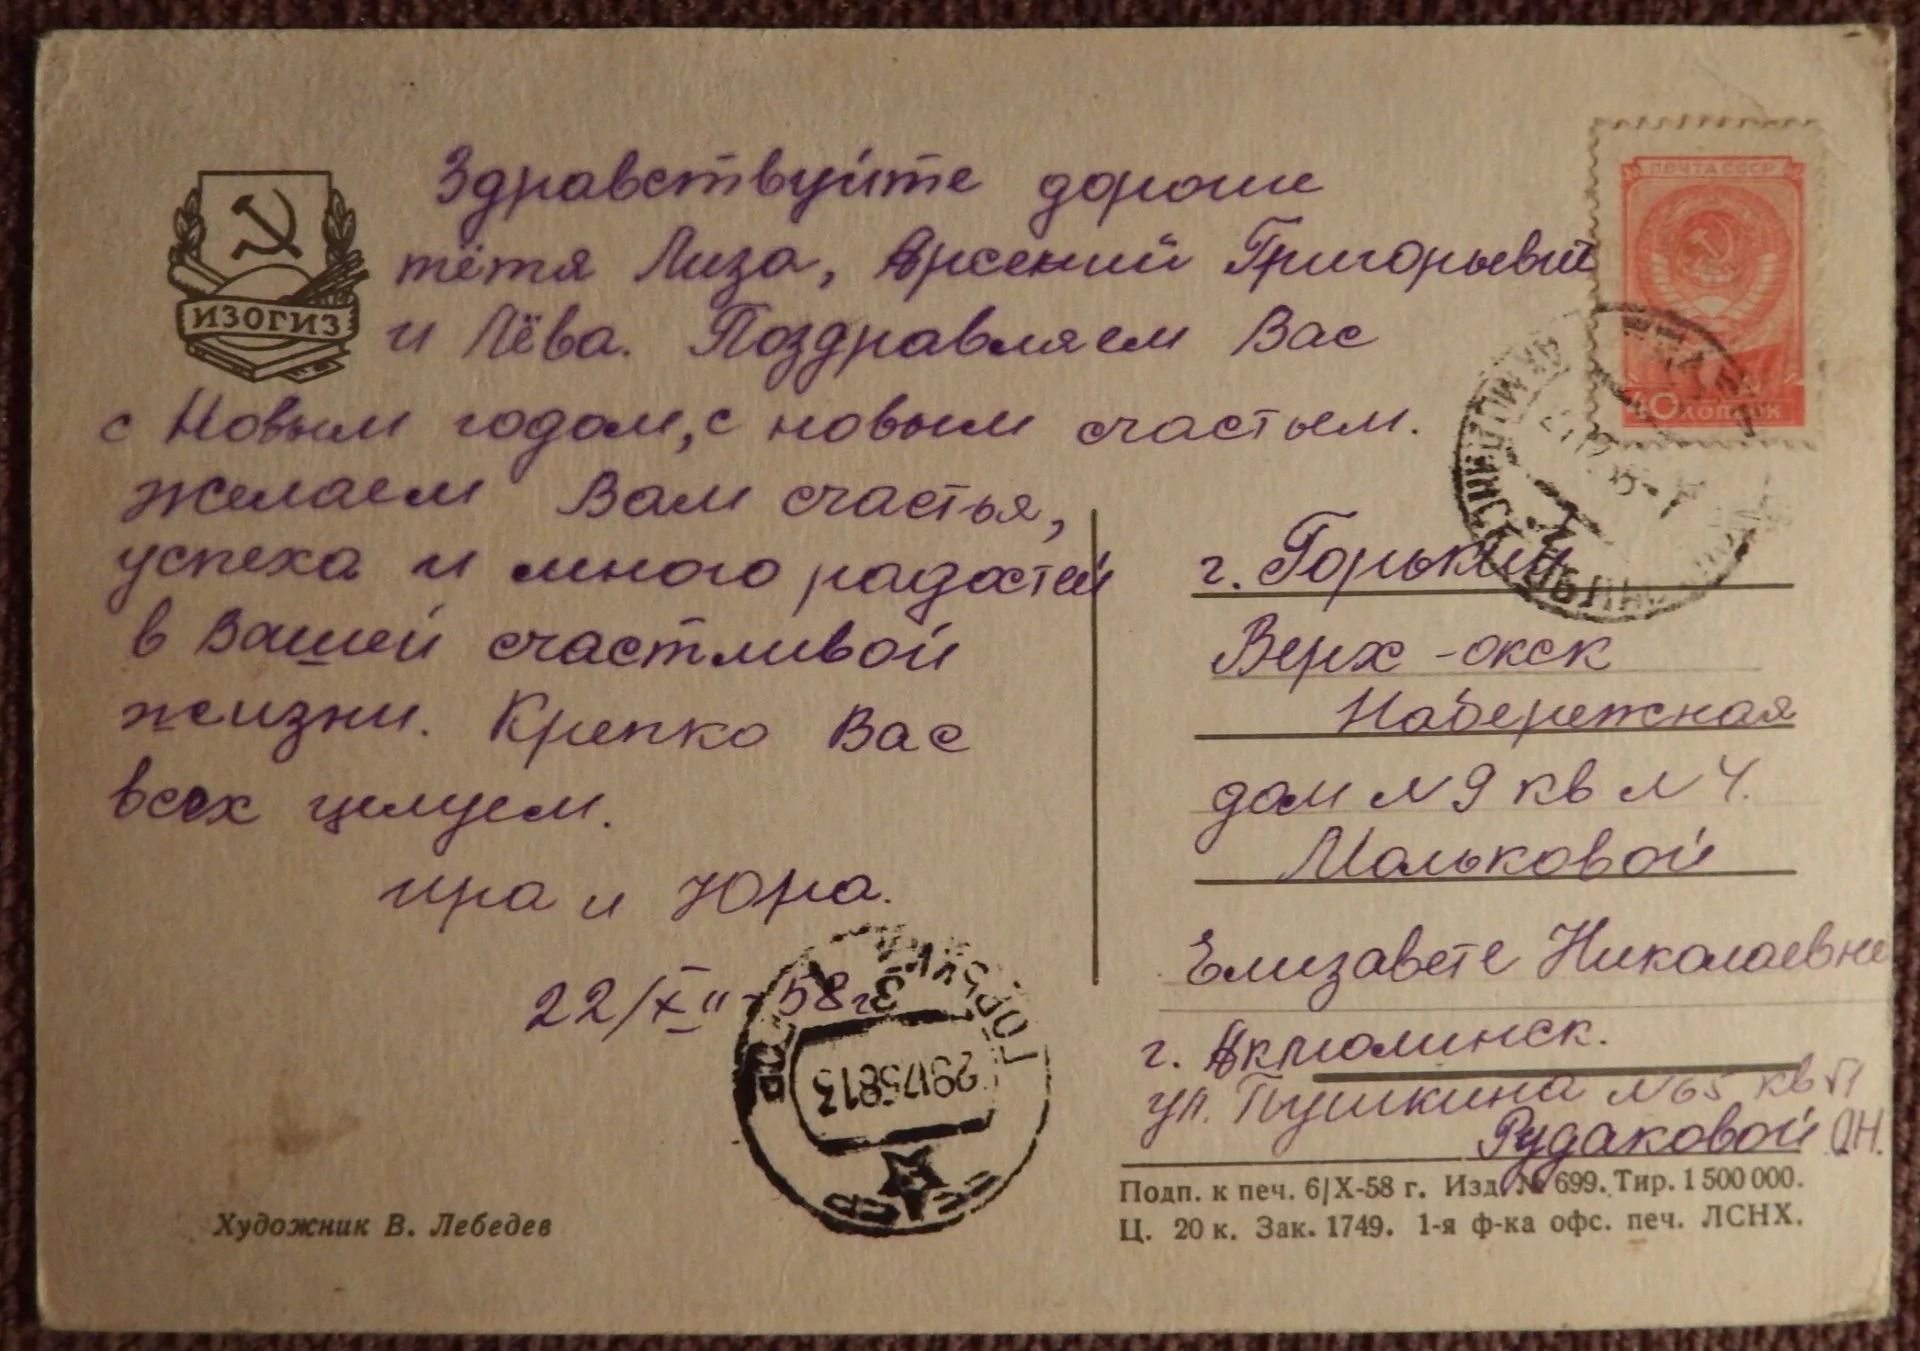 ИЗОГИЗ
Здравствуйте дорогие
тётя Лиза, Арсений Григорьевич
и Лёва. Поздравляем Вас
с Новым годом, с новым счастьем.
желаем Вам счастья,
успеха и много радостей
в Вашей счастливой
жизни. Крепко Вас
всех целуем.
Ира и Юра.
22/XII-58г
Художник В. Лебедев
ПОЧТА СССР
40 КОПЕЕК
г. Горький
Верх-окск
Набережная
дом N 9 кв N 4.
Мальковой
Елизавете Николаевне
г. Акмолинск.
ул. Пушкина N 65 кв
Рудаковой
Подп. к печ. 6/X-58 г. Изд. № 699. Тир. 1 500 000.
Ц. 20 к. Зак. 1749. 1-я ф-ка офс. печ. ЛСНХ.
ГОРЬКИЙ